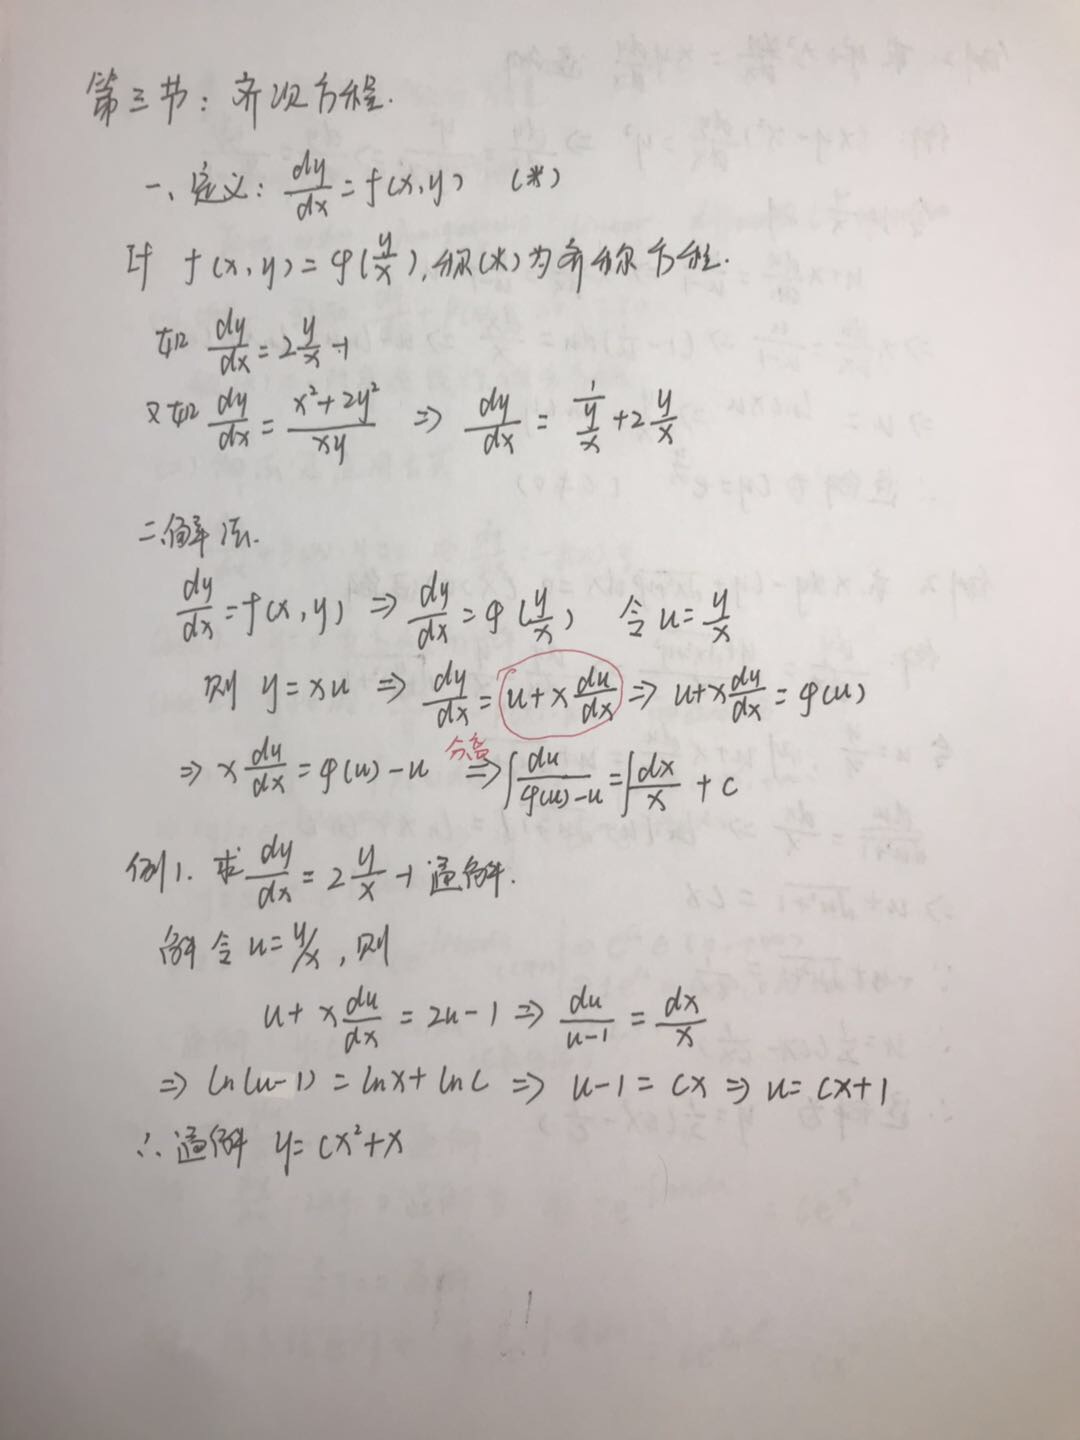 第三节：齐次方程.
一、定义：dy/dx = f(x,y) (*)
If f(x,y) = φ(y/x), 称(*)为齐次方程.
如 dy/dx = 2 y/x -1
又如 dy/dx = (x²+2y²)/(xy) ⇒ dy/dx = 1/(y/x) + 2 y/x
二.解法.
dy/dx = f(x,y) ⇒ dy/dx = φ(y/x) 令 u = y/x
则 y = xu ⇒ dy/dx = u + x du/dx ⇒ u+x dy/dx = φ(u)
⇒ x du/dx = φ(u) - u 分离 ⇒ ∫ du/(φ(u)-u) = ∫ dx/x + c
例1. 求 dy/dx = 2 y/x -1 通解.
解 令 u = y/x, 则
u + x du/dx = 2u-1 ⇒ du/(u-1) = dx/x
⇒ ln(u-1) = lnx + lnC ⇒ u-1 = Cx ⇒ u = Cx+1
∴ 通解 y = Cx²+x